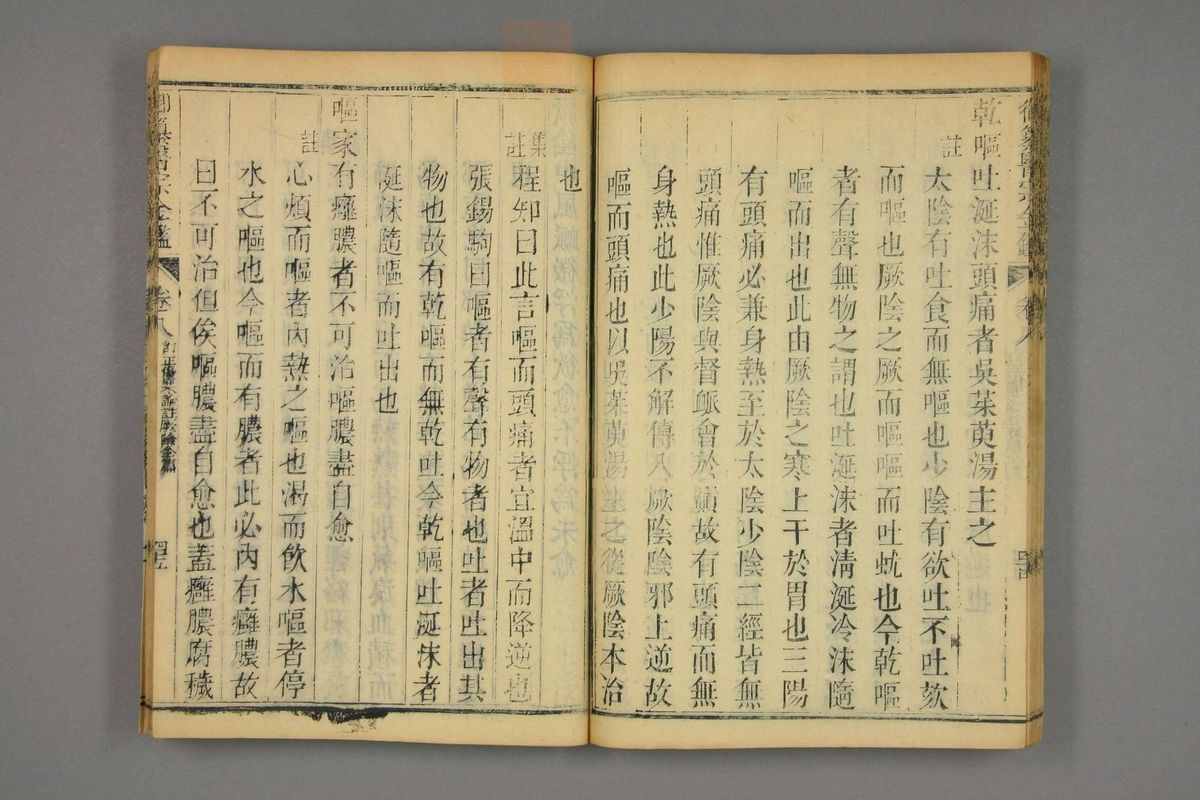 乾嘔吐涎沫頭痛者吳茱萸湯主之
註
太陰有吐食而無嘔也少陰有欲吐不吐欬
而嘔也厥陰之厥而嘔嘔而吐蚘也今乾嘔
者有聲無物之謂也吐涎沫者清涎冷沫隨
嘔而出也此由厥陰之寒上干於胃也三陽
有頭痛必兼身熱至於太陰少陰二經皆無
頭痛惟厥陰與督脈會於巔故有頭痛而無
身熱也此少陽不解傳入厥陰陰邪上逆故
嘔而頭痛也以吳茱萸湯主之從厥陰本治
也
集註
程知曰此言嘔而頭痛者宜溫中而降逆也
張錫駒曰嘔者有聲有物者也吐者吐出其
物也故有乾嘔而無乾吐今乾嘔吐涎沫者
涎沫隨嘔而吐出也
嘔家有癰膿者不可治嘔膿盡自愈
註
心煩而嘔者內熱之嘔也渴而飲水嘔者停
水之嘔也今嘔而有膿者此必內有癰膿故
曰不可治但俟嘔膿盡自愈也蓋癰膿腐穢
御纂醫宗金鑑
卷八